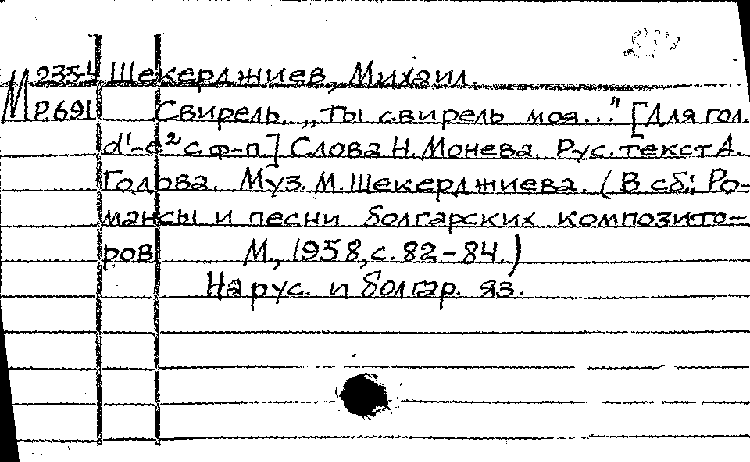 М 235-1 Шекерджиев, Михаил.
Р691 Свирель. „Ты свирель моя..." [Для гол.
d'-e² с ф-п.] Слова Н. Монева. Рус. текст А.
Голова. Муз. М. Шекерджиева. (В сб.: Ро-
мансы и песни болгарских композито-
ров М., 1958, с. 82-84.)
На рус. и болгар. яз.